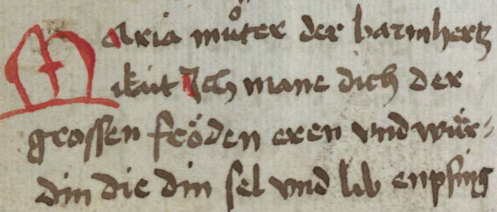 Maria můter der barmhertz
ikait Ich mane dich der
grossen fröden eren vnd wür-
din die din sel vnd lib enpfing